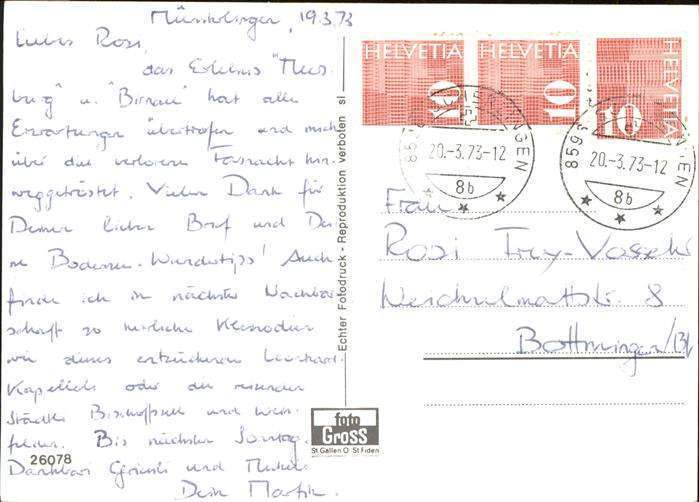 Münsterlingen, 19.3.73
Liebes Rosi,
das Erlebnis "Meers-
burg" u. "Birnau" hat alle
Erwartungen übertroffen und mich
über die verlorene Fasnacht hin-
weggetröstet. Vielen Dank für
Deinen lieben Brief und Dei-
ne Bodensee-Wandertips! Auch
finde ich in nächster Nachbar-
schaft so herrliche Kleinodien
wie dieses entzückende Leonhard-
Kapelleli oder die
Städtli Bischofszell und Wein-
felden. Bis nächsten Sonntag.
Dankbar Grüessli und
Dein Martin.
26078
Echter Fotodruck - Reproduktion verboten si
foto
Gross
St Gallen O St Fiden
HELVETIA 10
HELVETIA 10
HELVETIA 10
8593
20.-3.73-12
8b
8593
20.-3.73-12
8b
Frau
Rosi Frey-
8
Bottmingen/BL